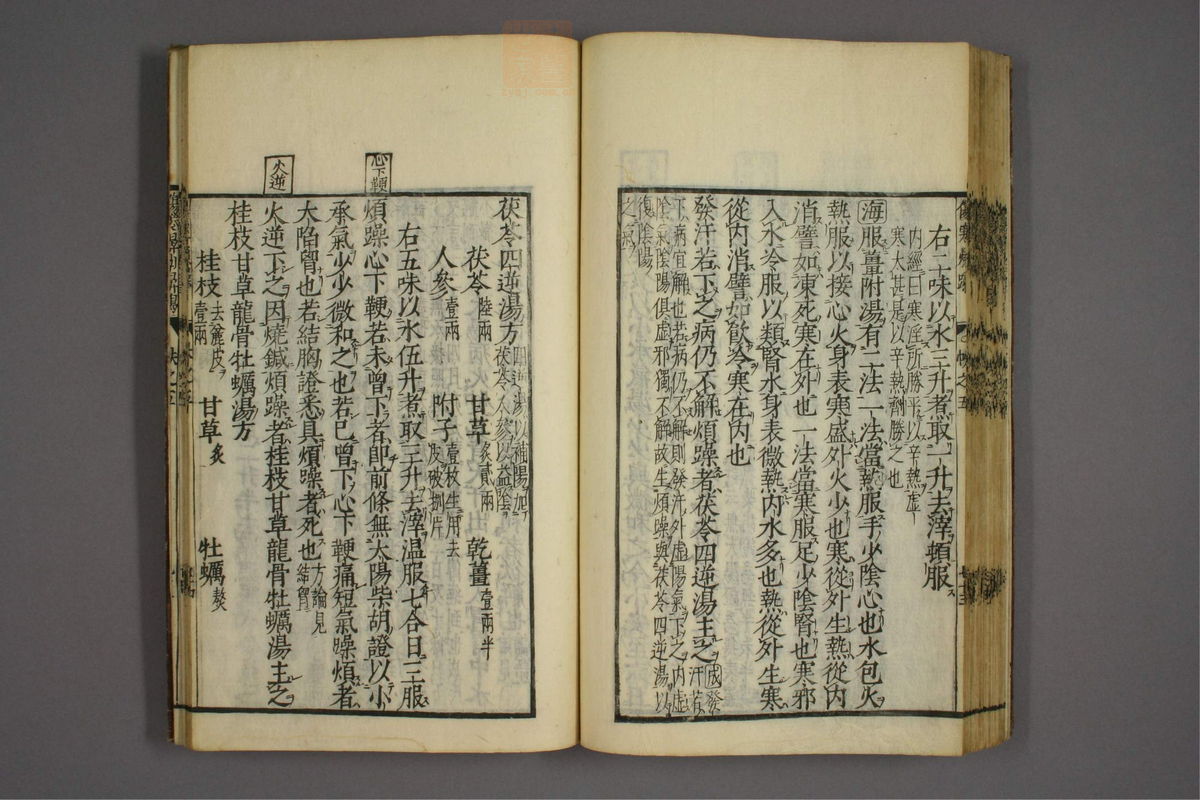 右二味以水三升煮取一升去滓頓服
内經曰寒淫所勝平以辛熱虛
寒大甚是以辛熱劑勝之也
海服薑附湯有二法一法當熱服手少陰心也水包火
熱服以接心火身表寒盛外火少也寒從外生熱從内
消譬如凍死寒在外也一法當寒服足少陰腎也寒邪
入水冷服以類腎水身表微熱内水多也熱從外生寒
從内消譬如飲冷寒在内也
發汗若下之病仍不解煩躁者茯苓四逆湯主之
成發汗若
下病宜解也若病仍不解則發汗外虛陽氣下之内虛
陰氣陰陽俱虛邪獨不解故生煩躁與茯苓四逆湯以
復陰陽
之氣
茯苓四逆湯方
四逆湯以補陽加
茯苓人參以益陰
茯苓陸兩 甘草炙貳兩 乾薑壹兩半
人參壹兩 附子壹枚生用去皮破捌片
右五味以水伍升煮取三升去滓温服七合日三服
心下鞕
煩躁心下鞕若未曾下者即前條無太陽柴胡證以小
承氣少少微和之也若已曾下心下鞕痛短氣躁煩者
大陷胷也若結胸證悉具煩躁者死也方論見結胷
火逆
火逆下之因燒鍼煩躁者桂枝甘草龍骨牡蠣湯主之
桂枝甘草龍骨牡蠣湯方
桂枝去麄皮壹兩 甘草炙 牡蠣熬